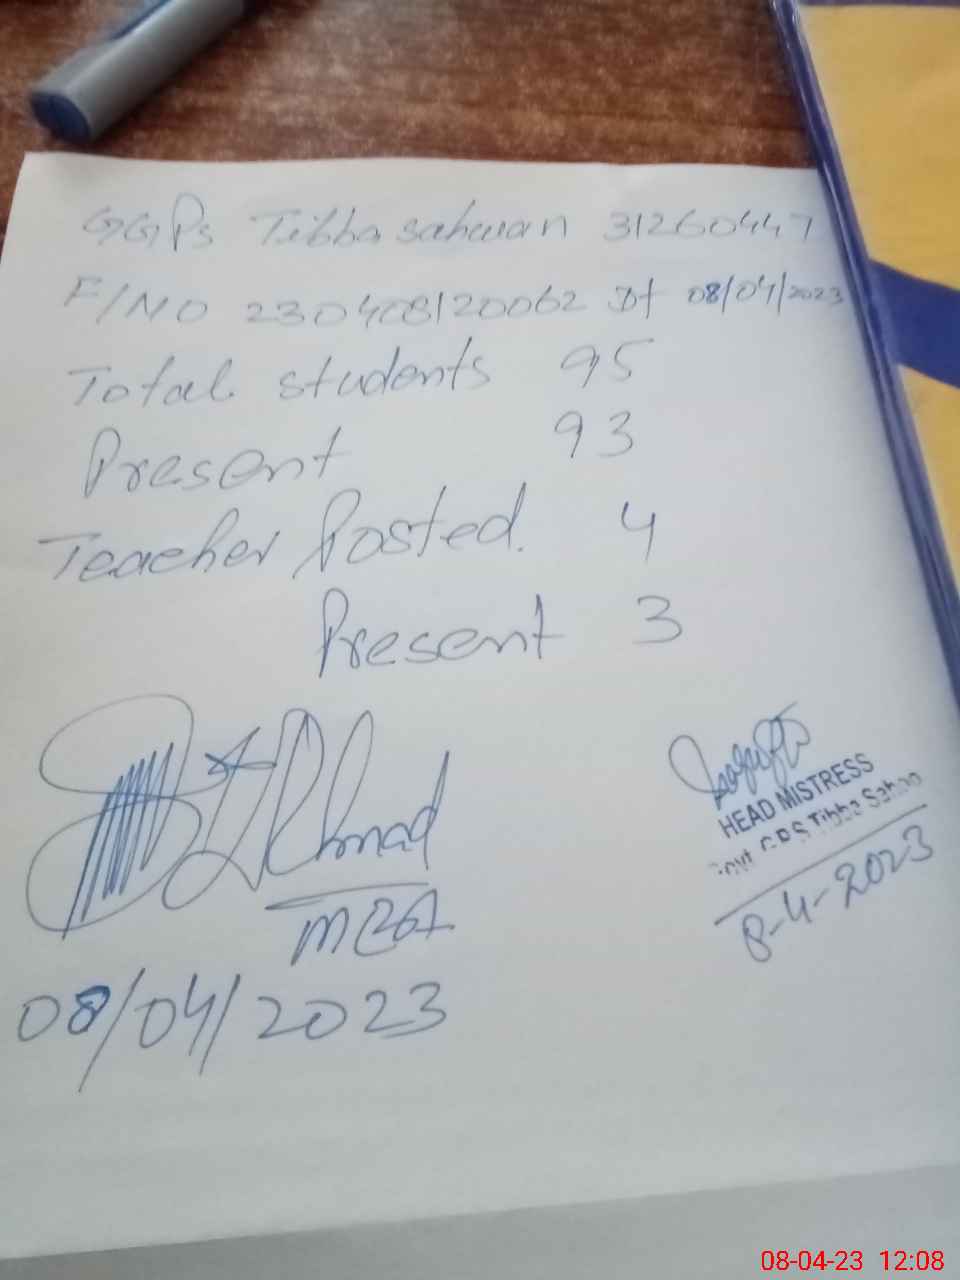 GGPs Tibba sahwan 31260447
F/NO 230408120062 Dt 08/04/2023
Total students 95
Present 93
Teacher Posted. 4
Present 3
Ahmad
HEAD MISTRESS
Govt. G.P.S Tibba
8-4-2023
08/04/2023
08-04-23 12:08